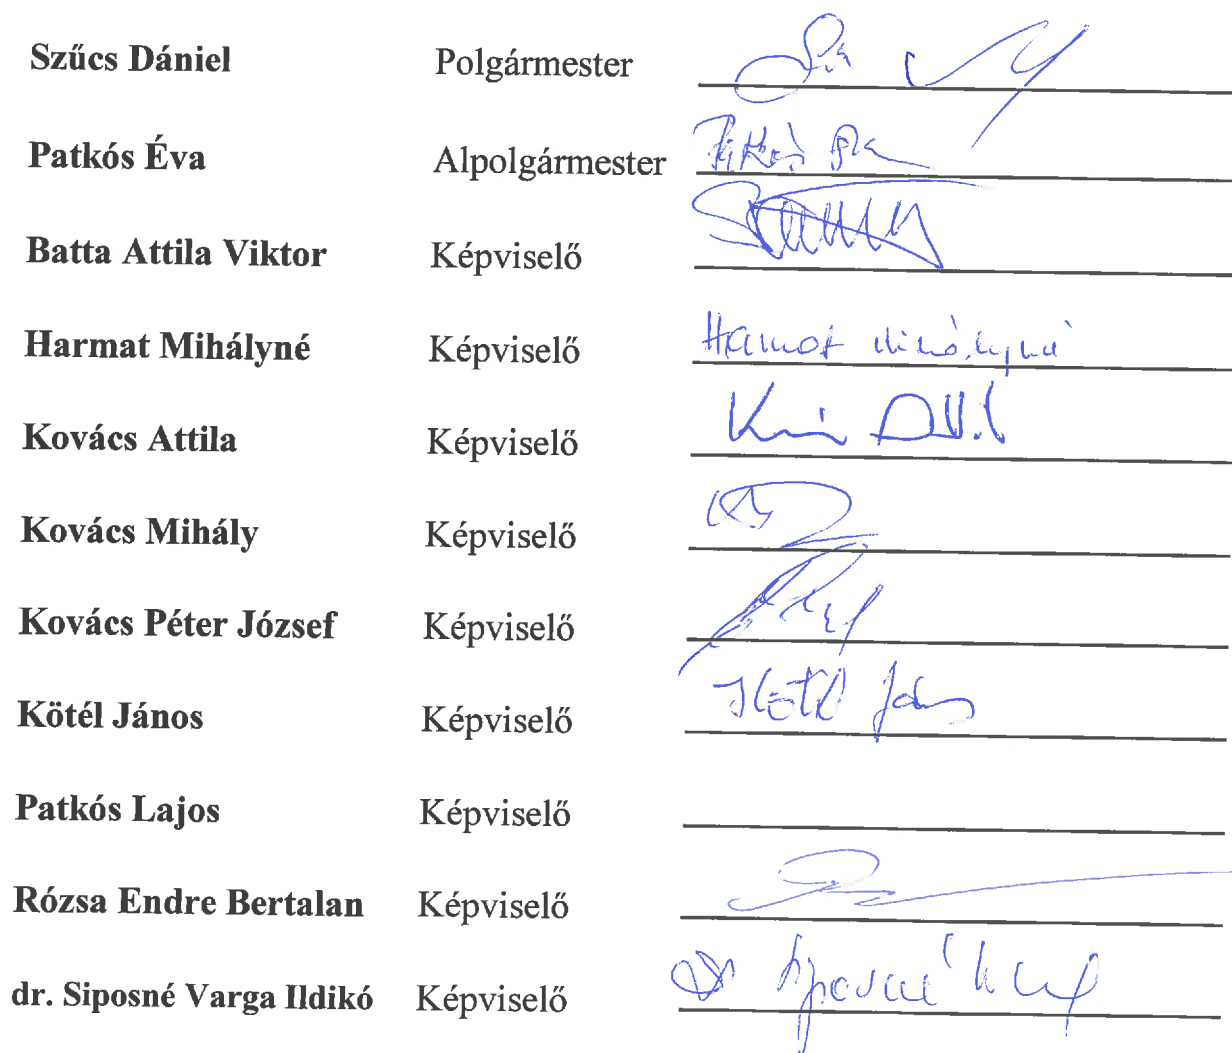 Szűcs Dániel Polgármester
Patkós Éva Alpolgármester Patkós Éva
Batta Attila Viktor Képviselő
Harmat Mihályné Képviselő Harmat Mihályné
Kovács Attila Képviselő
Kovács Mihály Képviselő
Kovács Péter József Képviselő
Kötél János Képviselő Kötél János
Patkós Lajos Képviselő
Rózsa Endre Bertalan Képviselő
dr. Siposné Varga Ildikó Képviselő